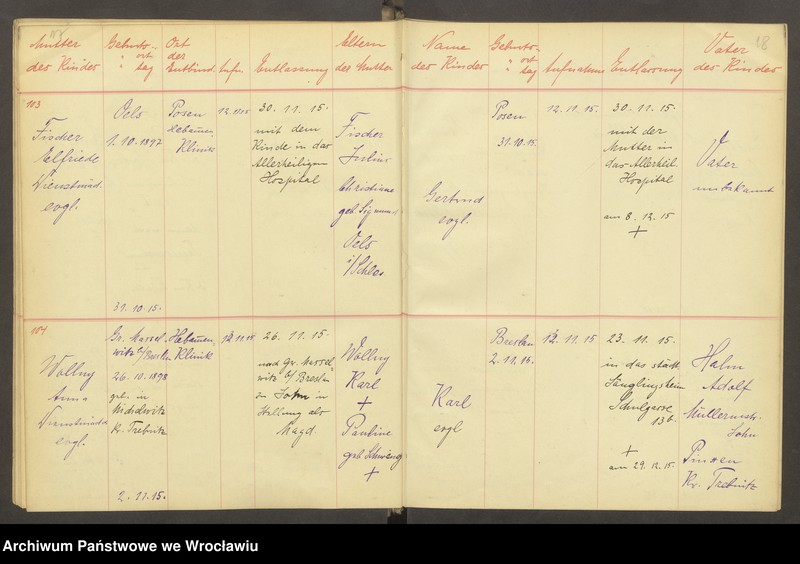 18
Mutter
der Kinder
Geburts-
ort
" tag
Ort
der
Entbind.
Aufn.
Entlassung
Eltern
der Mutter
Name
der Kinder
Geburts-
ort
" tag
Aufnahme
Entlassung
Vater
der Kinder
103
Fischer
Elfriede
Dienstmäd.
evgl.
Oels
1.10.1897
31.10.15.
Posen
Hebamen
Klinik
12.11.15
30.11.15.
mit dem
Kinde in das
Allerheiligen
Hospital
Fischer
Julius
Christiane
geb.
Oels
i/Schles.
Gertrud
evgl.
Posen
31.10.15.
12.11.15.
30.11.15.
mit der
Mutter in
das Allerheil.
Hospital
am 8.12.15
+
Vater
unbekannt
104
Wollny
Anna
Dienstmäd
evgl.
Gr. Massel-
witz b/Breslau
26.10.1898
geb. in
Kr. Trebnitz
2.11.15.
Hebamen
Klinik
12.11.15
26.11.15.
nach Gr. Massel-
witz b/Breslau
in
Stellung als
Magd.
Wollny
Karl
+
Pauline
geb.
+
Karl
evgl
Breslau
2.11.15.
12.11.15
23.11.15.
in das städt.
Säuglingsheim
Schulgasse
13b.
+
am 29.12.15.
Hahn
Adolf
Müllermstr.
Sohn
Kr. Trebnitz
Archiwum Państwowe we Wrocławiu